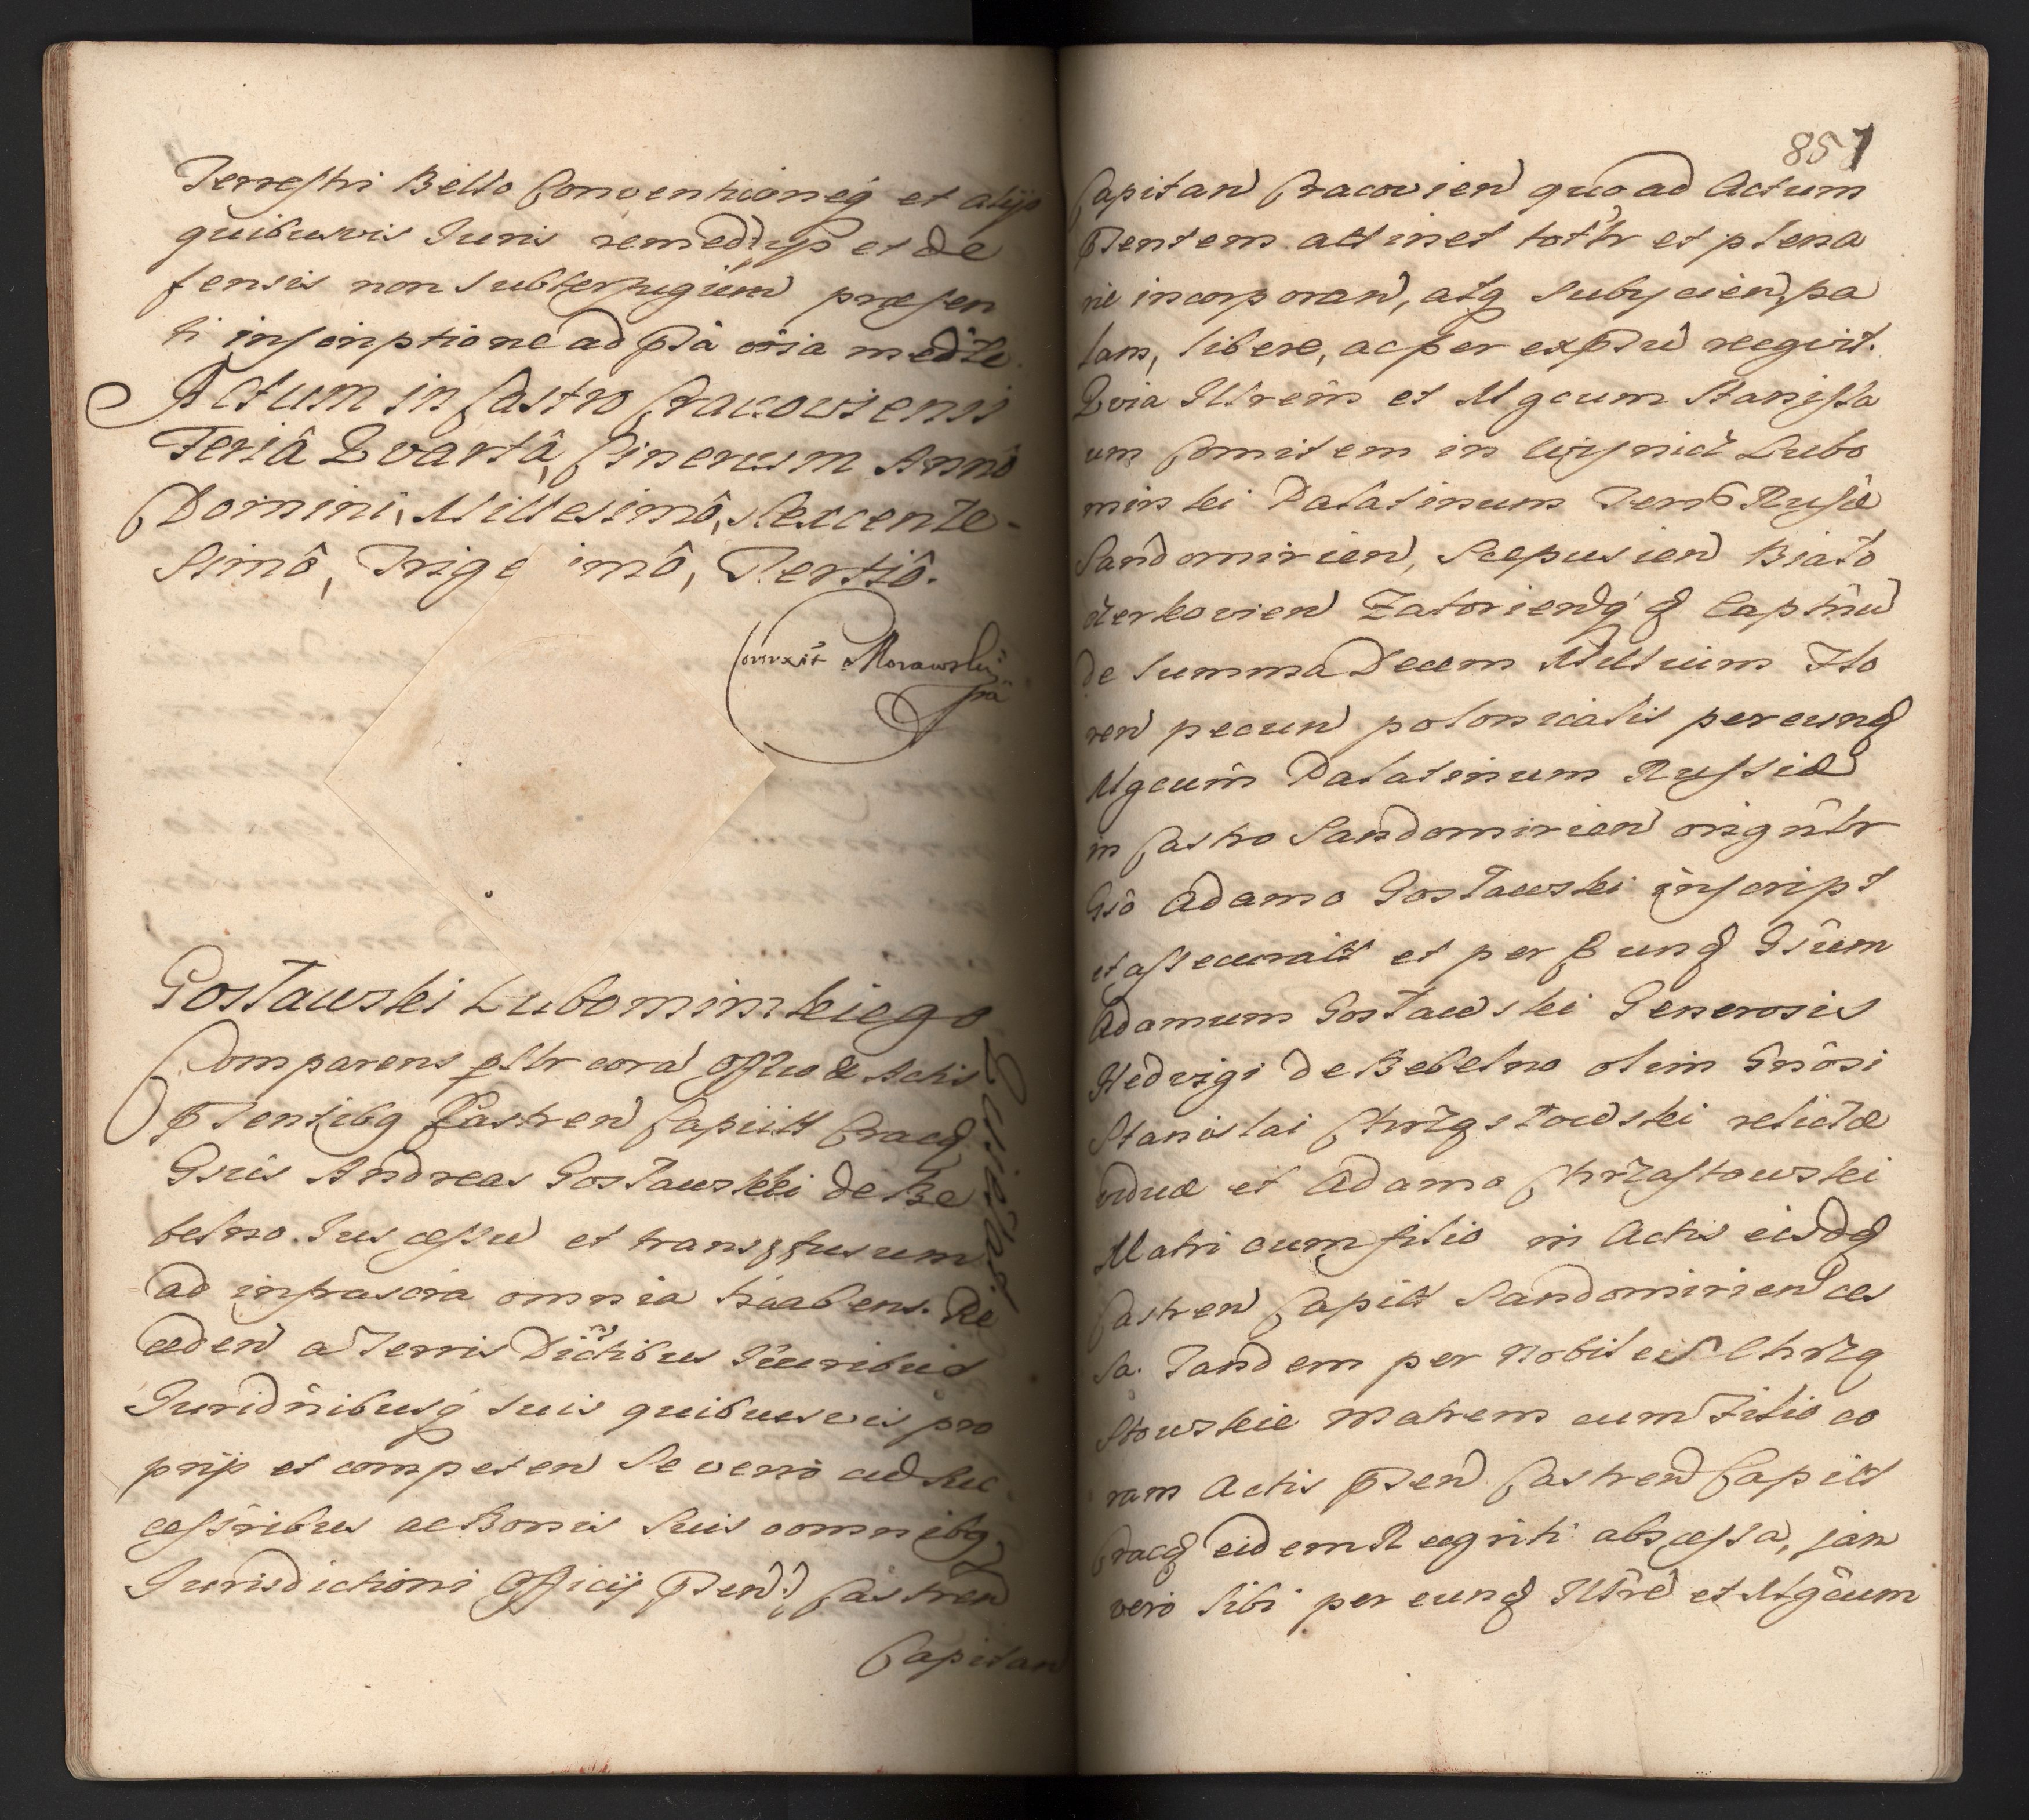 Terrestri Bello Conventioneq et alijs
quibusvis Juris remedijs et de
fensis non Subterfugium præsen
ti inscriptione ad pta oia medte.
Actum in Castro Cracoviensi
Feriâ Qvartâ, Cinerum Anno
Domini, Millesimô, Sexcente-
Simô, Trige imô, Tertiô.
Correxit Morawsky
Gosławski Lubomirskiego
Comparens psltr corã Offico & Actis
Ptentibq Castren Capittl Cracq
Gsûs Andreas Gosławski de Be
belno. Jus cessu et transfusum
ad infrascra omnia habens. Re
ceden a Terris Dictibus Juribus
Juridnibusq suis quibusvis pro
prijs et competen Se vero cũ Suc
cessribus ac Bonis Suis oomnibq
Jurisdictioni Officij Pten Castren
Capitan
857
Capitan Cracovien quoad Actum
Ptentem attinet totlr et plena
rie incorporan, atq Subycien, pa
lam, libere, ac per expsu recgvit.
Qvia Illrem et Mgcum Stanisla
um Comitem in Wisnicz Lubo
mirski Palatinum Terr Russiæ
Sandomirien, Scepusien Biało
cerkovien Zatorienq q Captnu
de Summa Decem Millium Flo
ren pecun polonicalis per eunq
Mgcum Palatinum Russiæ
in Castro Sandomirien orignlr
Gsô Adamo Gosławski inscript
et assecuratt et per Eunq Gsum
Adamum Gosławski Generosis
Hedvigi de Bebelno olim Gnosi
Stanislai Chrząstowski relictæ
viduæ et Adamo Chrząstowski
Matri cum filio in Actis eisdq
Castren Capitt Sandomirien ces
sa. Tandem per Nobiles Chrzą
stowskie Matrem cum Filio co
ram Actis Pten Castren Capitt
Cracq eidem Recgnti abscessa, jan
vero Sibi per eunq Illre et Mgcum